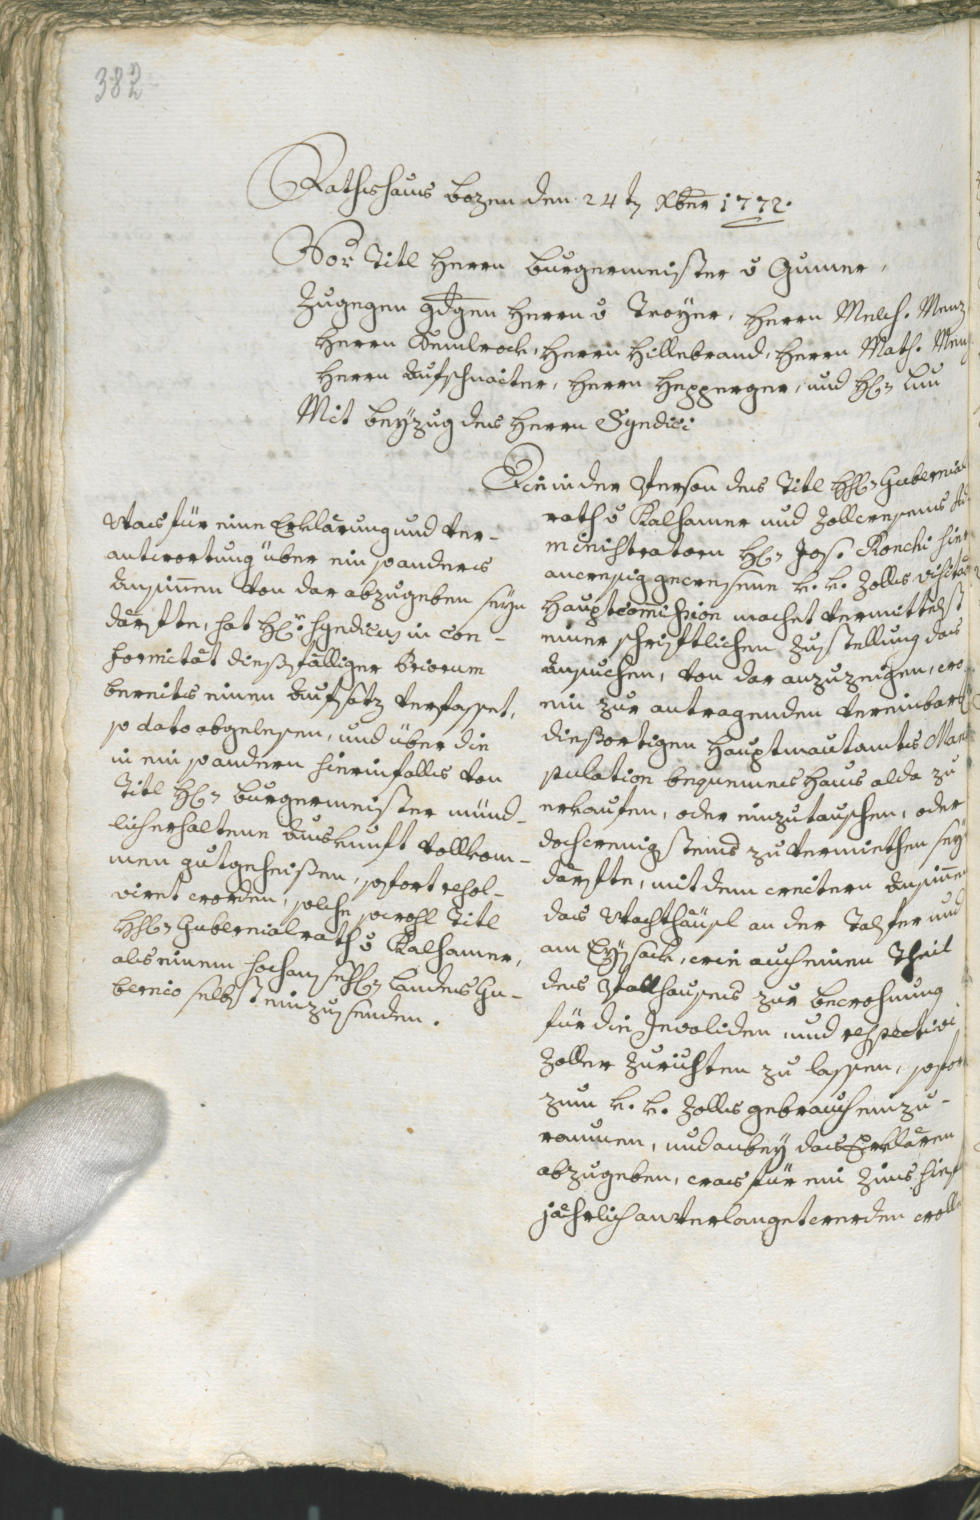 382
Rathshaus Bozen den 24t Xber 1772.
Vor Titl Herrn Burgermeister v Gumer,
Zugegen Herrn v Troyer, Herrn Melch. Menz
Herrn Kemlrock, Herrn Hillebrand, Herrn Math. Menz
Herrn Aufschnaiter, Herrn Hepperger, und H:
Mit beyzug des Herrn Syndici
Die in der Person des Titl Gubernial
rath v Kalhamer und Zollwesens Ad
ministratorn H: Jos. Ronchi hier
anwesig gewesene k. k. Zolls visitaõns
Hauptcommission machet vermittelst
einer schriftlichen Zustellung das
Ansuchen, von dar anzuzeigen, wo
ein zur antragenden vereinbarth
diesortigen Hauptmautamts Mani
pulation bequemes Haus alda zu
erkaufen, oder einzutauschen, oder
doch wenigstens zu vermiethen sey
därfte, mit dem weitern Ansinnen
das Wachthäusl an der Talfer und
am Eysack, wie auch einen Theil
des Pallhausens zur bewohnung
für die Involiden, und respective
Zoller zurichten zu lassen, sofort
zum k. k. Zolls gebrauch einzu-
raumen, und anbey das Erklären
abzugeben, was für ein Zins hief
jährlich anverlanget werden wolle
Was für eine Erklärung und ver-
antwortung über ein so anderes
Ansinnen von dar abzugeben seyn
därfte, hat H: Syndicus in con-
formität diesfälliger Priorum
bereits einen Aufsatz verfasset,
so dato abgelesen, und über die
in ein so andern hierinfalls von
Titl H: Burgermeister münd-
lich erhaltene Auskunft vollkom-
men gutgeheißen, sofort resol-
viret worden, solche sowohl Titl
Gubernialrath v Kalhamer,
als einem hochansehl: Landes Gu-
bernio selbst einzusenden.